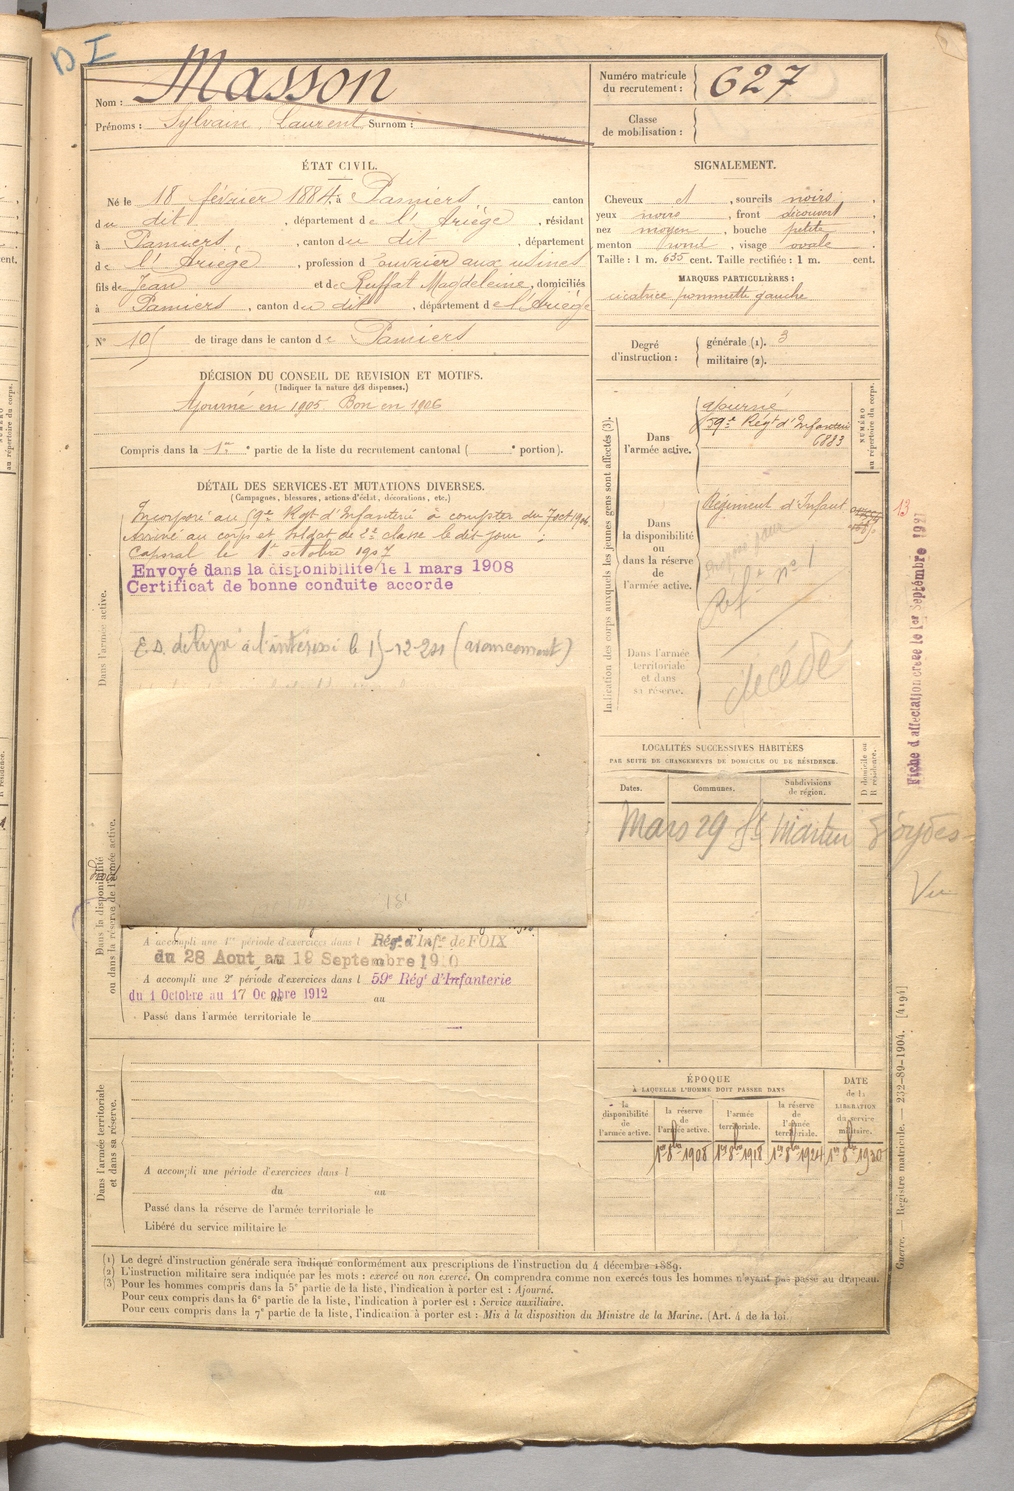 D I
Nom : Masson
Prénoms : Sylvain Laurent Surnom :
Numéro matricule
du recrutement : 627
Classe
de mobilisation :
ÉTAT CIVIL.
Né le 18 février 1884 à Pamiers, canton
du dit, département de l'Ariège, résidant
à Pamiers, canton du dit, département
de l'Ariège, profession d'ouvrier aux usines
fils de Jean et de Ruffat Magdeleine, domiciliés
à Pamiers, canton du dit, département de l'Ariège
N° 105 de tirage dans le canton de Pamiers
SIGNALEMENT.
Cheveux et, sourcils noirs,
yeux noirs, front découvert
nez moyen, bouche petite,
menton rond, visage ovale.
Taille : 1 m. 635 cent. Taille rectifiée : 1 m. cent.
MARQUES PARTICULIÈRES :
cicatrice pommette gauche
Degré
d'instruction :
générale (1). 3
militaire (2).
DÉCISION DU CONSEIL DE REVISION ET MOTIFS.
(Indiquer la nature des dispenses.)
Ajourné en 1905 Bon en 1906
Compris dans la 1re partie de la liste du recrutement cantonal ( e portion).
DÉTAIL DES SERVICES ET MUTATIONS DIVERSES.
(Campagnes, blessures, actions d'éclat, décorations, etc.)
Dans l'armée active.
Incorporé au 59e Régt d'Infanterie à compter du 7 oct 1906
Arrivé au corps et soldat de 2e classe le dit jour ;
Caporal le 1er octobre 1907
Envoyé dans la disponibilité le 1 mars 1908
Certificat de bonne conduite accordé
à l'intéressé le
Dans la disponibilité
ou dans la réserve de l'armée active.
A accompli une 1re période d'exercices dans l Régt d'Infie de FOIX
du 28 Aout au 19 Septembre 1910
A accompli une 2e période d'exercices dans l 59e Régt d'Infanterie
du 1 Octobre au 17 Octobre 1912 au
Passé dans l'armée territoriale le
Dans l'armée territoriale
et dans sa réserve.
A accompli une période d'exercices dans l
du au
Passé dans la réserve de l'armée territoriale le
Libéré du service militaire le
Indication des corps auxquels les jeunes gens sont affectés (3).
NUMÉRO
au répertoire du corps.
Dans
l'armée active.
ajourné
59e Régt d'Infanterie
6883
Dans
la disponibilité
ou
dans la réserve
de
l'armée active.
Régiment d'Infant
n° 1
Dans l'armée
territoriale
et dans
sa réserve.
décédé
13
Fiche d'affectation créée le 1er Septembre 1921
LOCALITÉS SUCCESSIVES HABITÉES
PAR SUITE DE CHANGEMENTS DE DOMICILE OU DE RÉSIDENCE.
Dates.
Communes.
Subdivisions
de région.
D domicile ou
R résidence.
Mars 29 St Martin d'Oydes
Vu
ÉPOQUE
À LAQUELLE L'HOMME DOIT PASSER DANS
la
disponibilité
de
l'armée active.
la réserve
de
l'armée active.
l'armée
territoriale.
la réserve
de
l'armée
territoriale.
DATE
de la
LIBÉRATION
du service
militaire.
1er 8bre 1908 1er 8bre 1918 1er 8bre 1924 1er 8bre 1930
(1) Le degré d'instruction générale sera indiqué conformément aux prescriptions de l'instruction du 4 décembre 1889.
(2) L'instruction militaire sera indiquée par les mots : exercé ou non exercé. On comprendra comme non exercés tous les hommes n'ayant pas passé au drapeau.
(3) Pour les hommes compris dans la 5e partie de la liste, l'indication à porter est : Ajourné.
Pour ceux compris dans la 6e partie de la liste, l'indication à porter est : Service auxiliaire.
Pour ceux compris dans la 7e partie de la liste, l'indication à porter est : Mis à la disposition du Ministre de la Marine. (Art. 4 de la loi
Guerre. — Registre matricule. — 232-89-1904. [4194]